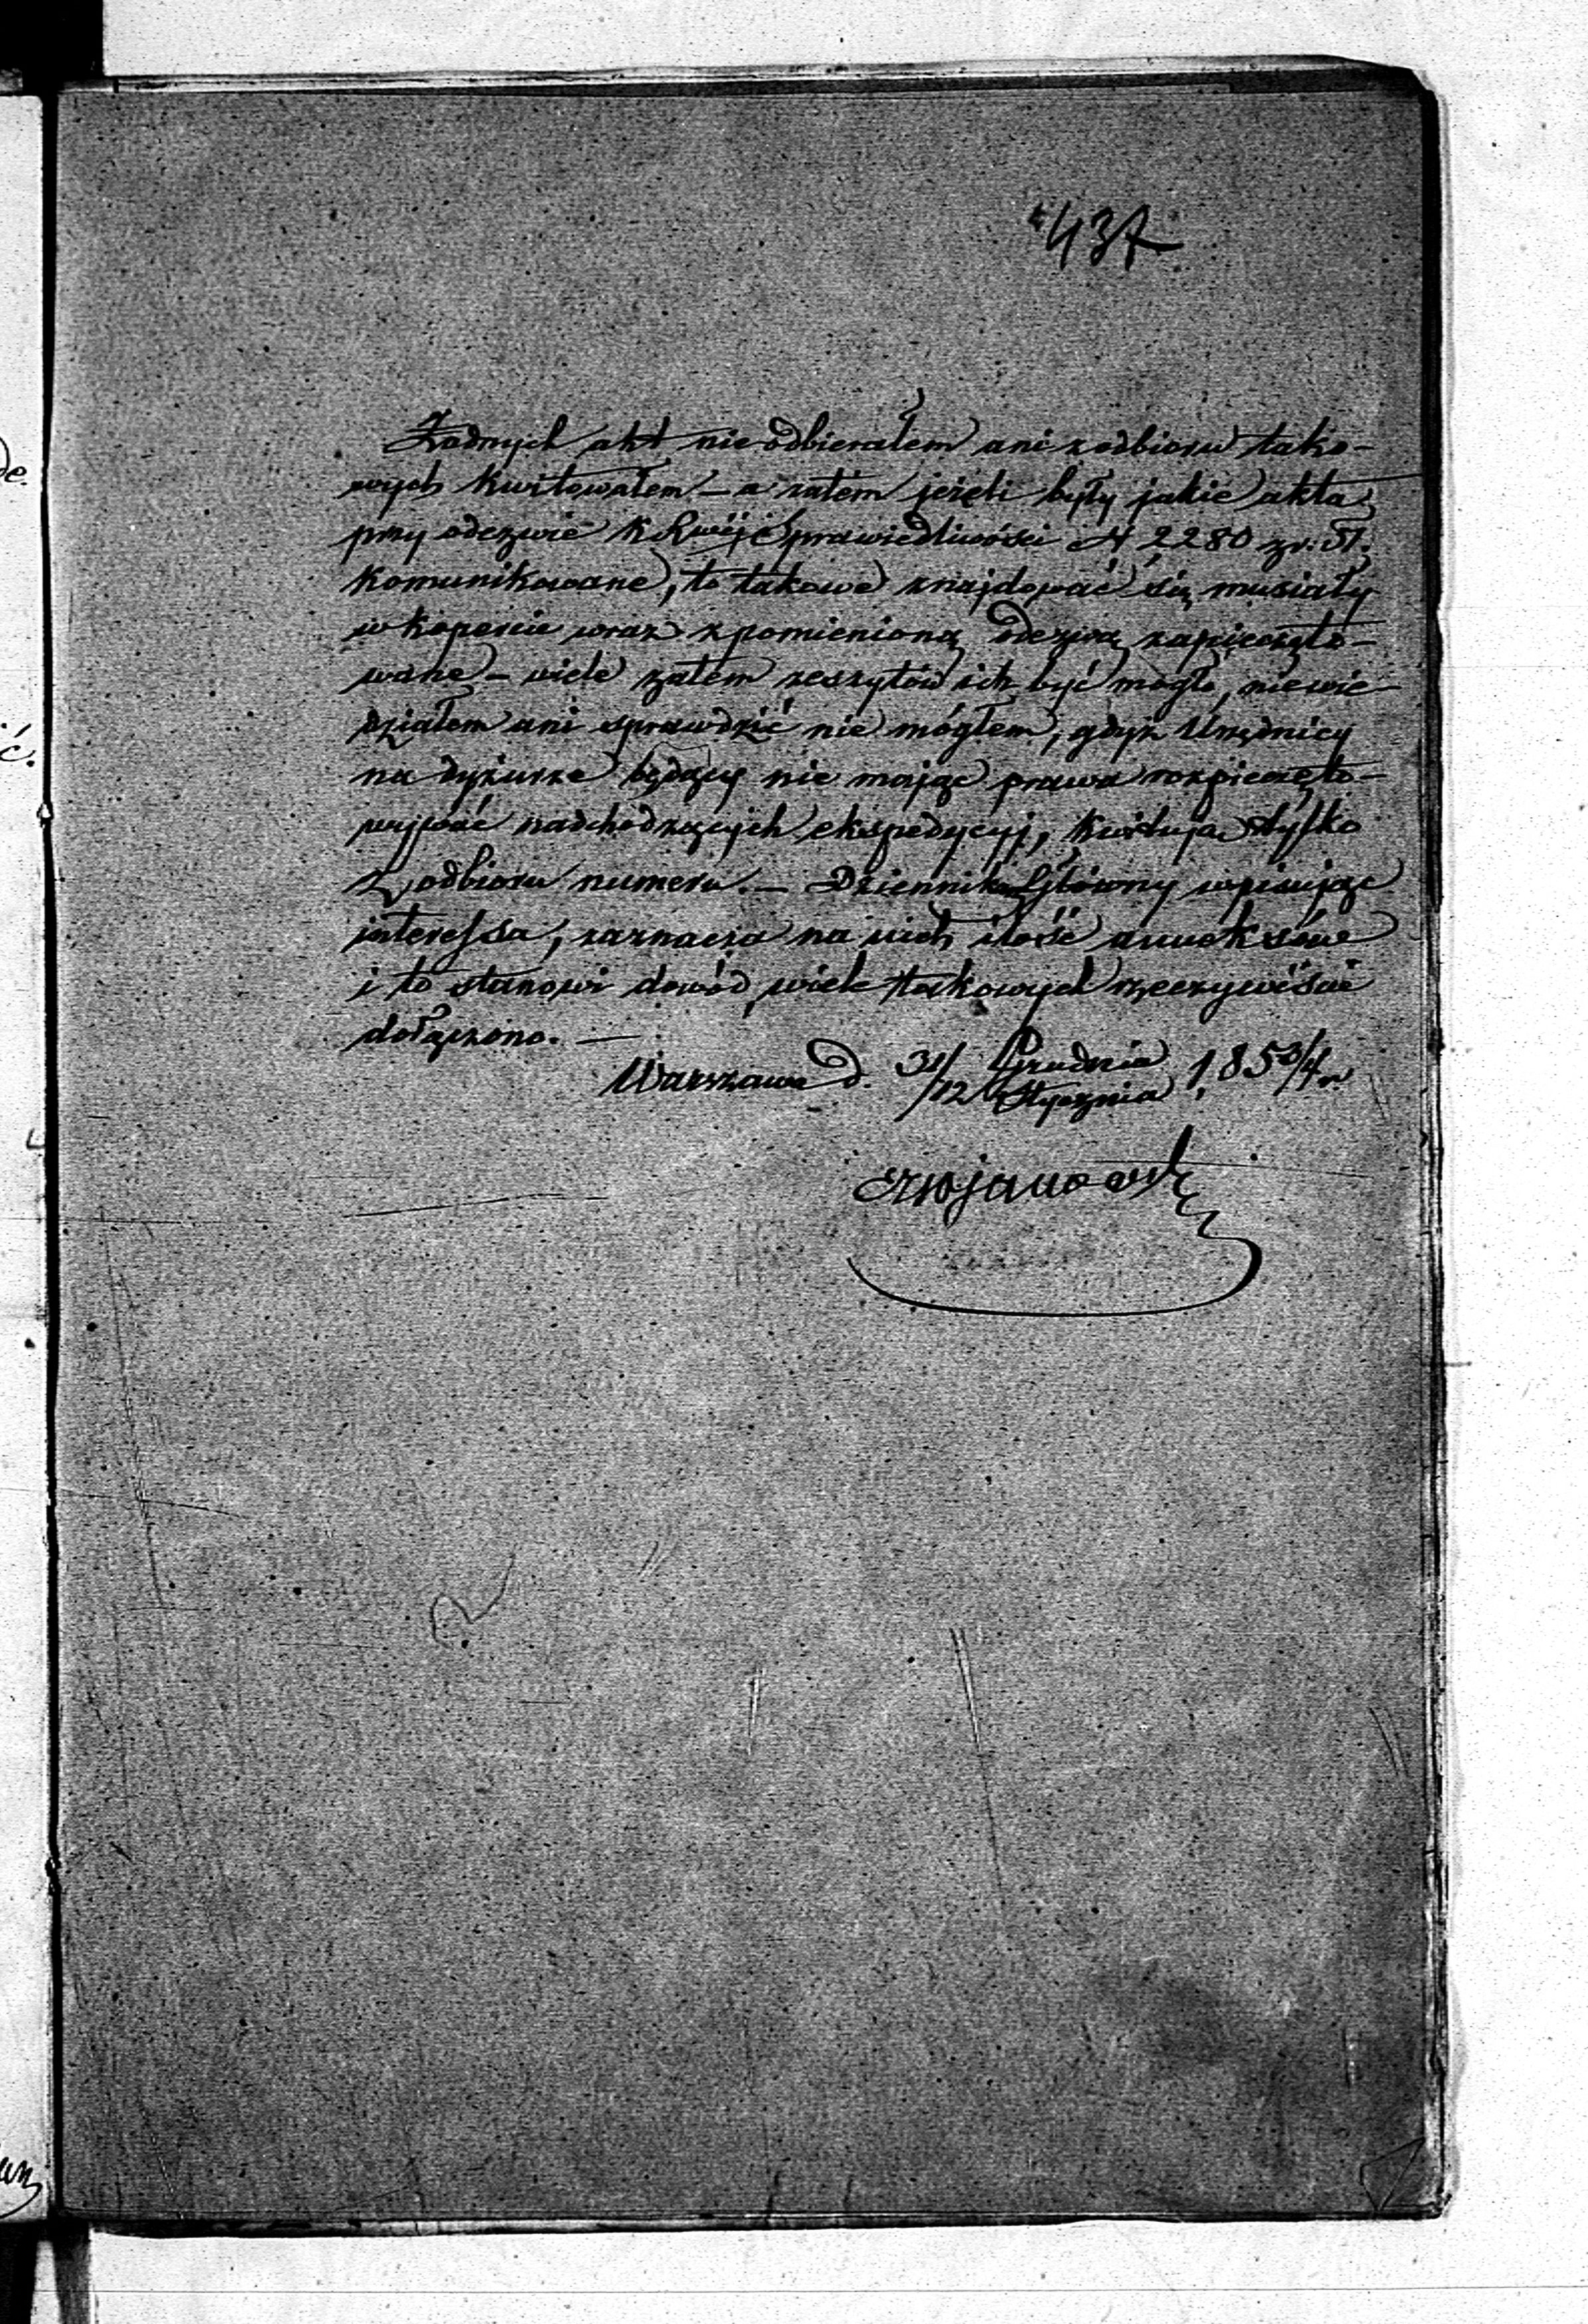 437
Żadnych akt nie odbierałem ani z odbioru tako-
wych kwitowałem – a zatem jeżeli były jakie akta
przy odezwie K Rwéj Sprawiedliwości N 2280 z r: 51.
komunikowane, to takowe znajdować się musiały
w kopercie wraz z pomienioną odezwą zapieczęto-
wane – wiele zatem zeszytów ich być mogło, niewie-
działem ani sprawdzić nie mógłem, gdyż Urzędnicy
na dyżurze będący nie mając prawa rozpieczęto-
wywać nadchodzących ekspedycyj, kwitują tylko
z odbioru numeru. – Dziennik Główny wpisując
interessa, zaznacza na nich ilość anneksów
i to stanowi dowód, wiele takowych rzeczywiście
dołączono. —
Warszawa d. 31/12 Grudnia/Stycznia 1853/4 r